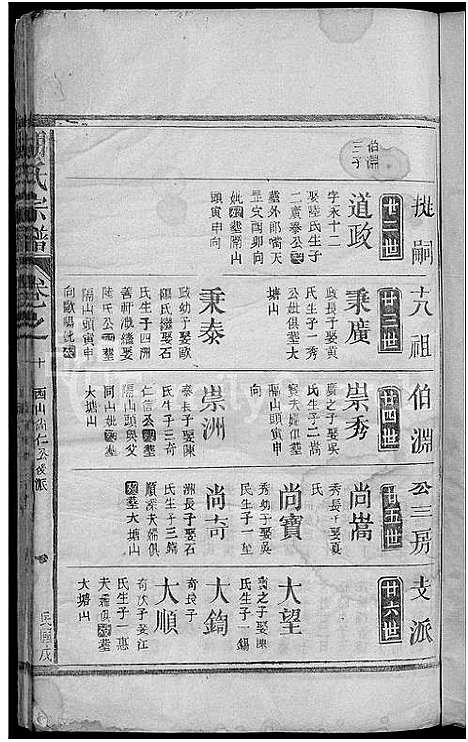 挺嗣十八祖伯淵公三房支派
伯淵
三子
廿二世
道政
字永十二
娶陸氏生子
二廣泰公
墓外郎
亥酉卯向
妣墓隔山
頭寅申向
廿三世
秉廣
政長子娶黃
氏生子一秀
公妣俱墓大
塘山
秉泰
政幼子娶歐
陽氏繼娶石
氏生子四洲
娶
陸氏公墓
隔山頭寅申
廿四世
崇秀
廣之子娶吳
氏生子二嵩
寶夫婦墓
隔山頭寅申
向
崇洲
泰長子娶陳
氏生子三奇
仁信公墓
隔山頭與父
同山妣墓
大塘山
廿五世
尚嵩
秀長子娶吳
氏
尚寶
秀幼子娶吳
氏生子一望
尚奇
洲長子娶石
氏生子三錡
順深夫婦俱
墓大塘山
廿六世
大望
寶之子娶陳
氏生子一錫
大錡
奇長子
大順
奇次子娶江
氏生子一惠
公妣俱墓
大塘山
氏宗譜
卷之
十
西山尚仁公後派
民國戊